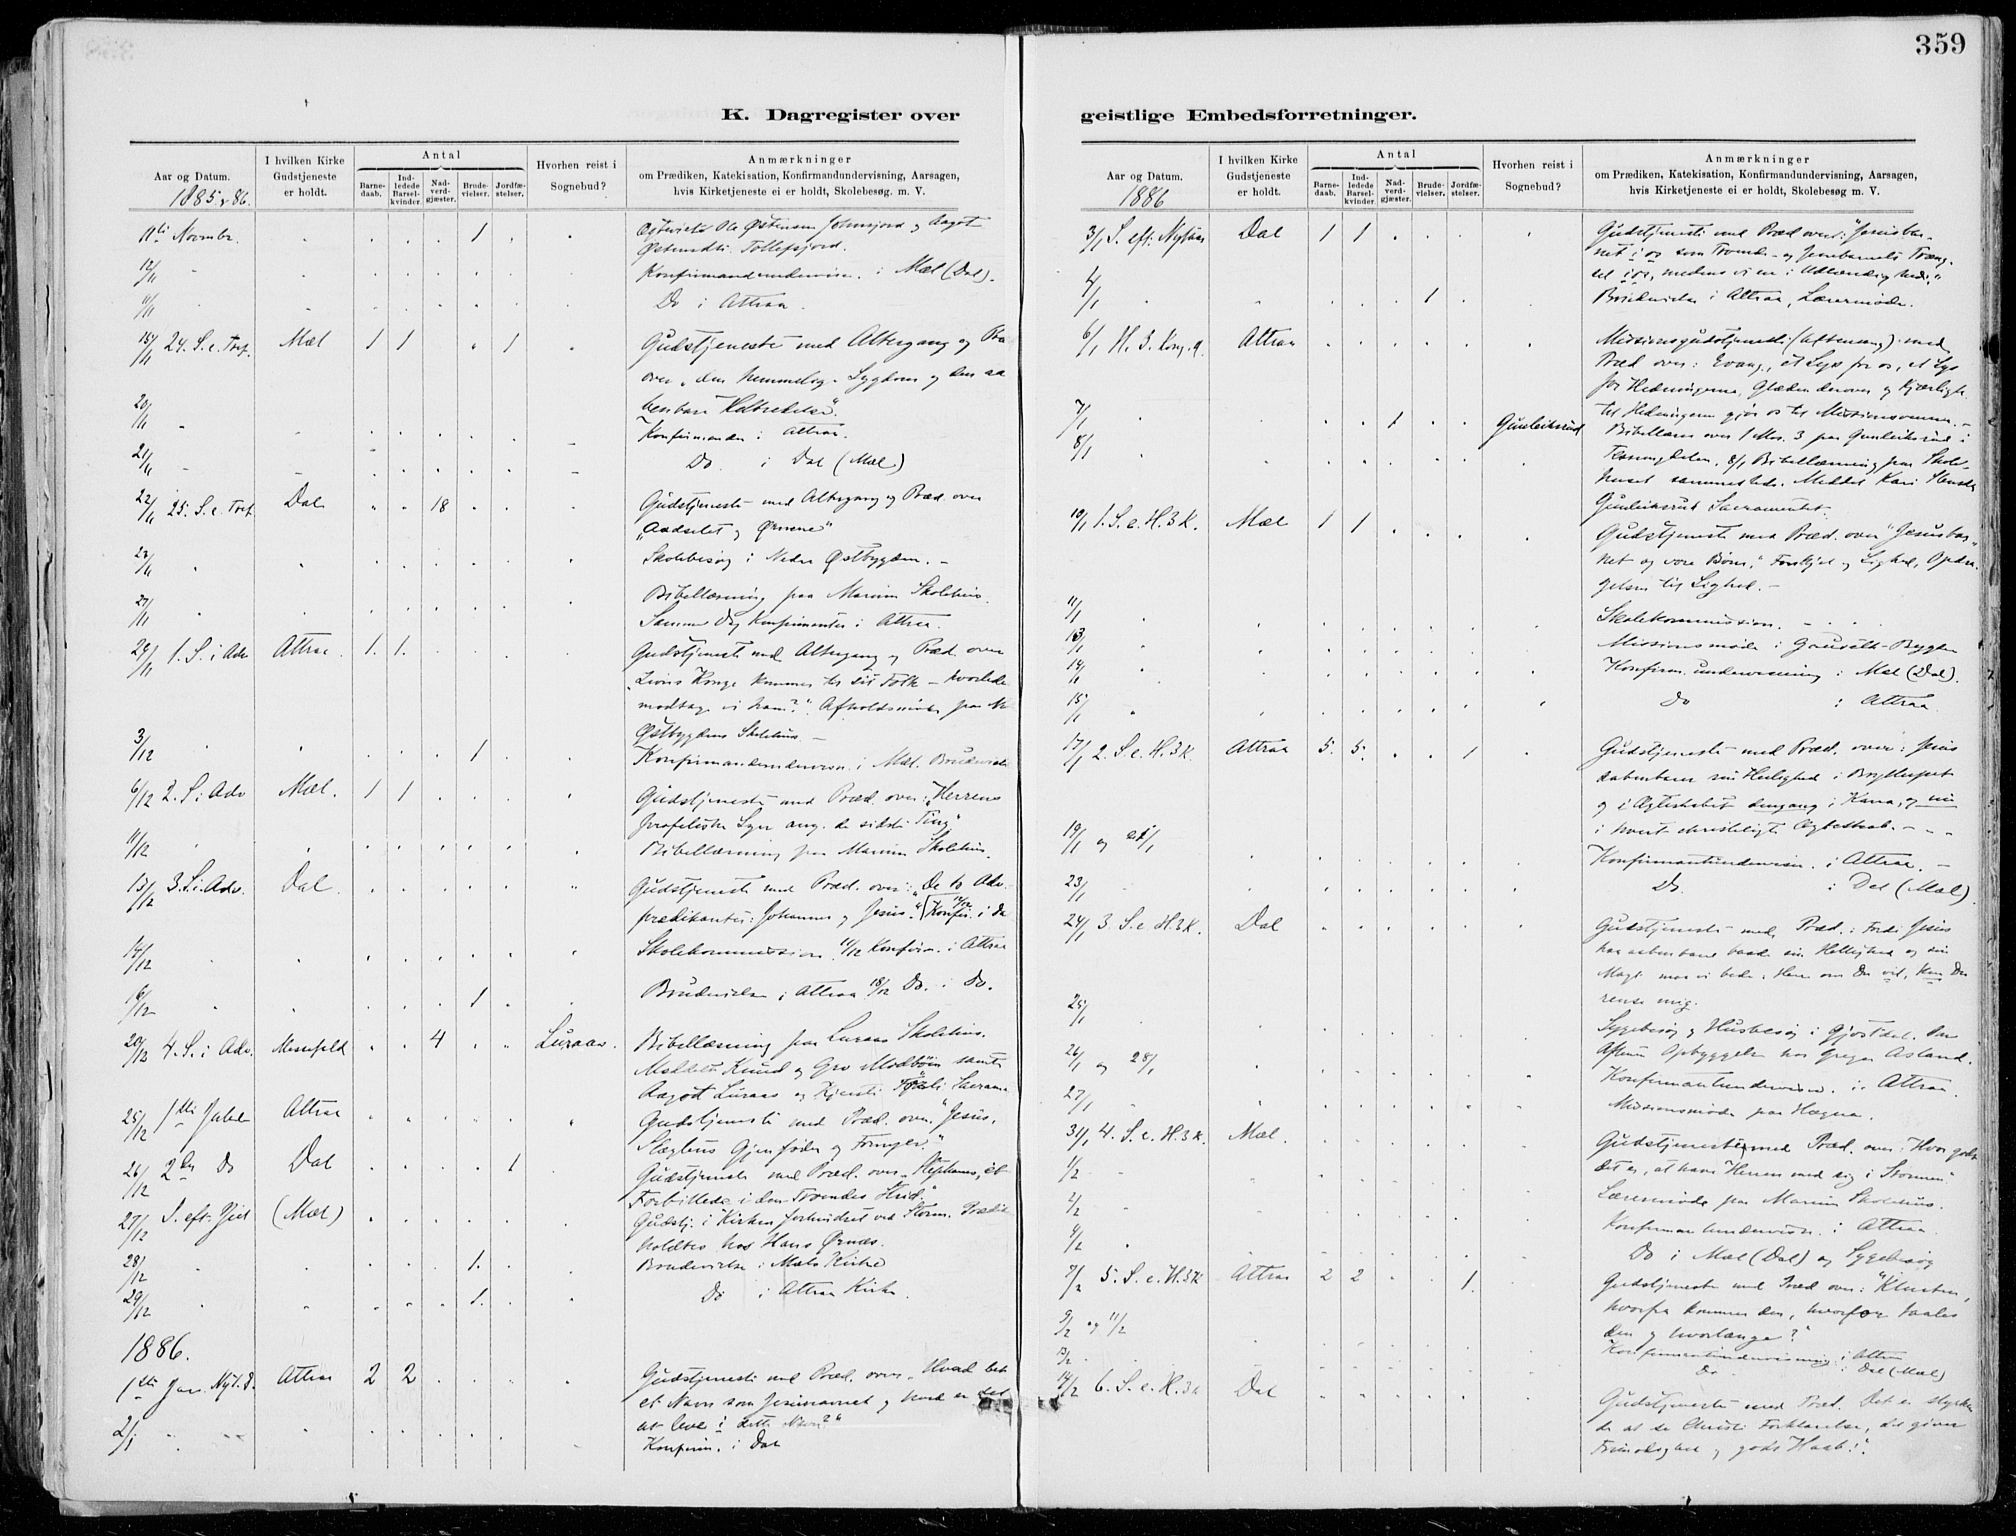 359
K. Dagregister over
Aar og Datum.
I hvilken Kirke Gudstjeneste er holdt.
Antal
Barne-daab.
Ind-ledede Barsel-kvinder.
Nad-verd-gjæster.
Brude-vielser.
Jordfæ-stelser.
Hvorhen reist i Sognebud?
Anmærkninger
om Prædiken, Katekisation, Konfirmandundervisning, Aarsagen,
hvis Kirketjeneste ei er holdt, Skolebesøg m. V.
1885 - 86.
11te Novmbr. 1 Ole Østensen og Aagot
12/11 Konfirmandundervisn. i Mæl (Dal).
Do i Attraa.
15/11 24. S. e. Tref. Mæl 1 1 1 Gudstjeneste med Altergang og
over "den hemmelig Sygdom og den aa
benbare
20/11 Konfirmander i Attraa.
21/11 Do. i Dal (Mæl)
22/11 25. S. e. Tref. Dal 18 Gudstjeneste med Altergang og Præd. over
"Aadselet og Ørnene"
23/11 Skolebesøg i Nedre Østbygden. -
27/11 Bibellæsning paa Marum Skolehus.
Samme Dag Konfirmanter i Attraa.
29/11 1. S. i Adv Attraa. 1. 1. Gudstjeneste med Altergang og Præd. over
"Zions Konge kommer til sit Folk - hvorlede
modtage vi ham?". Afholdsmøde paa
Østbygdens Skolehus. -
3/12 1 Konfirmandundervisn. i Mæl. Brudevielse
6/12 2. S. i Adv Mæl. 1 1 Gudstjeneste med Præd. over: "Herrens
profetiske Syn ang. de sidste Ting"
11/12 Bibellæsning paa Marum Skolehus.
13/12 3. S. i Adv. Dal. Gudstjeneste med Præd. over: "De to Adv.
prædikanter: Johannes og Jesus." (Konfir. i Da
14/12 Skolekommission. 11/12 Konfirm. i Attraa
16/12 1 Brudevielse i Attraa 18/12 Do. i Do.
20/12 4. S. i Adv. Messefald 4 Luraas. Bibellæsning paa Luraas Skolehus.
Meddelte Knud og Gro Modbøen samt
Aagot Luraas og Kjersti
25/12 1ste Juledag Attraa Gudstjeneste med Præd. over. "Jesus,
Slægtens Gjenføder og Fornyer".
26/12 2den Do Dal 1 Gudstjeneste med Præd. over "Stephanus, et
Forbillede i den Troendes Strid."
27/12 S. eft. Jul (Mæl) Gudstj. i Kirken forhindret ved Storm. Prædik
holdtes hos Hans Ørnæs.
28/12 1. Brudevielse i Mæls Kirke
29/12 1. Do i Attraa Kirke
1886.
1ste Jan. Nyt. D. Attraa 2 2 Gudstjeneste med Præd. over "Hvad bet
et Navn som Jesunavnet og hvad er det
at leve i dette Navn?"
2/1 Konfirm. i Dal
geistlige Embedsforretninger.
Aar og Datum.
I hvilken Kirke Gudstjeneste er holdt.
Antal
Barne-daab.
Ind-ledede Barsel-kvinder.
Nad-verd-gjæster.
Brude-vielser.
Jordfæ-stelser.
Hvorhen reist i Sognebud?
Anmærkninger
om Prædiken, Katekisation, Konfirmandundervisning, Aarsagen,
hvis Kirketjeneste ei er holdt, Skolebesøg m. V.
1886
3/1 S. eft. Nytaar Dal 1 1 Gudstjeneste med Præd over: "Jesusbar-
net i os som Troende - og Jesubarnets Træng-
sel i os, medens vi er i Udlændighed."
4/1 1 Brudevielse i Attraa, Lærermøde.
6/1 H. 3. Kong. Attraa Missionsgudstjeneste (Aftensang) med
Præd over: Evang., et Lys for os, et Lys
for Hedningerne, Glæden derover og Kjærlighe
til Hedningerne gjør os til Missionsvenner. -
7/1 1 Gunleiksrud Bibellæsn over 1 Mos. 3 paa Gunleiksrud i
8/1 8/1 Bibellæsning paa Skole-
huset sammesteds. Meddelt Kari
Gunleiksrud Sacramentet.
10/1 1. S. e. H. 3 K. Mæl 1 1 Gudstjeneste med Præd. over "Jesusbar-
net og vore Børn," Forskjel og Lighed, Opdra-
gelsen til Lighed. -
11/1 Skolekommission. -
13/1 Missionsmøde i Bygden
14/1 Konfirm.undervisning i Mæl (Dal).
15/1 Do i Attraa.
17/1 2. S. e. H. 3 K. Attraa 5. 5. 1 Gudstjeneste med Præd. over: Jesus
aabenbarer sin Herlighed i Bryllupet
og i Ægteskabet dengang i Kana, og nu
i hvert christeligt Ægteskab. -
19/1 og 21/1 Konfirmantundervisn. i Attraa. -
23/1 Do. i Dal (Mæl)
24/1 3 S. e. H. 3 K. Dal Gudstjeneste med Præd.: Fordi Jesus
har aabenbaret baade sin Hellighed og sin
Magt maa vi bede: Herre om Du vil, Kan Du
rense mig.
25/1 Sygebesøg og Husbesøg i Gjøstdal. Om
Aftenen Opbyggelse hos Gregar Aasland.
26/1 og 28/1 Konfirmantundervisn. i Attraa.
27/1 Missionsmøde paa Hægna.
31/1 4. S. e. H. 3 K. Mæl. Gudstjeneste med Præd. over: Hvor godt
det er, at have Herren med sig i Stormen"
1/2 Lærermøde paa Marum Skolehus.
2/2 Konfirmantundervisn. i Attraa.
4/2 Do i Mæl (Dal) og Sygebesøg
7/2 5. S. e. H. 3 K Attraa 2 2 1. Gudstjeneste med Præd over: "Klinten,
hvorfra kommer den, hvorfor taales
den og hvorlænge?"
9/2 og 11/2 Konfirmantundervisning i Attraa
13/2 Do. i Dal (Mæl)
14/2 6. S. e. H. 3 K Dal Gudstjeneste med Præd. Det er styrken
de at se Christi Forklarelse, det giver
og godt Haab!".